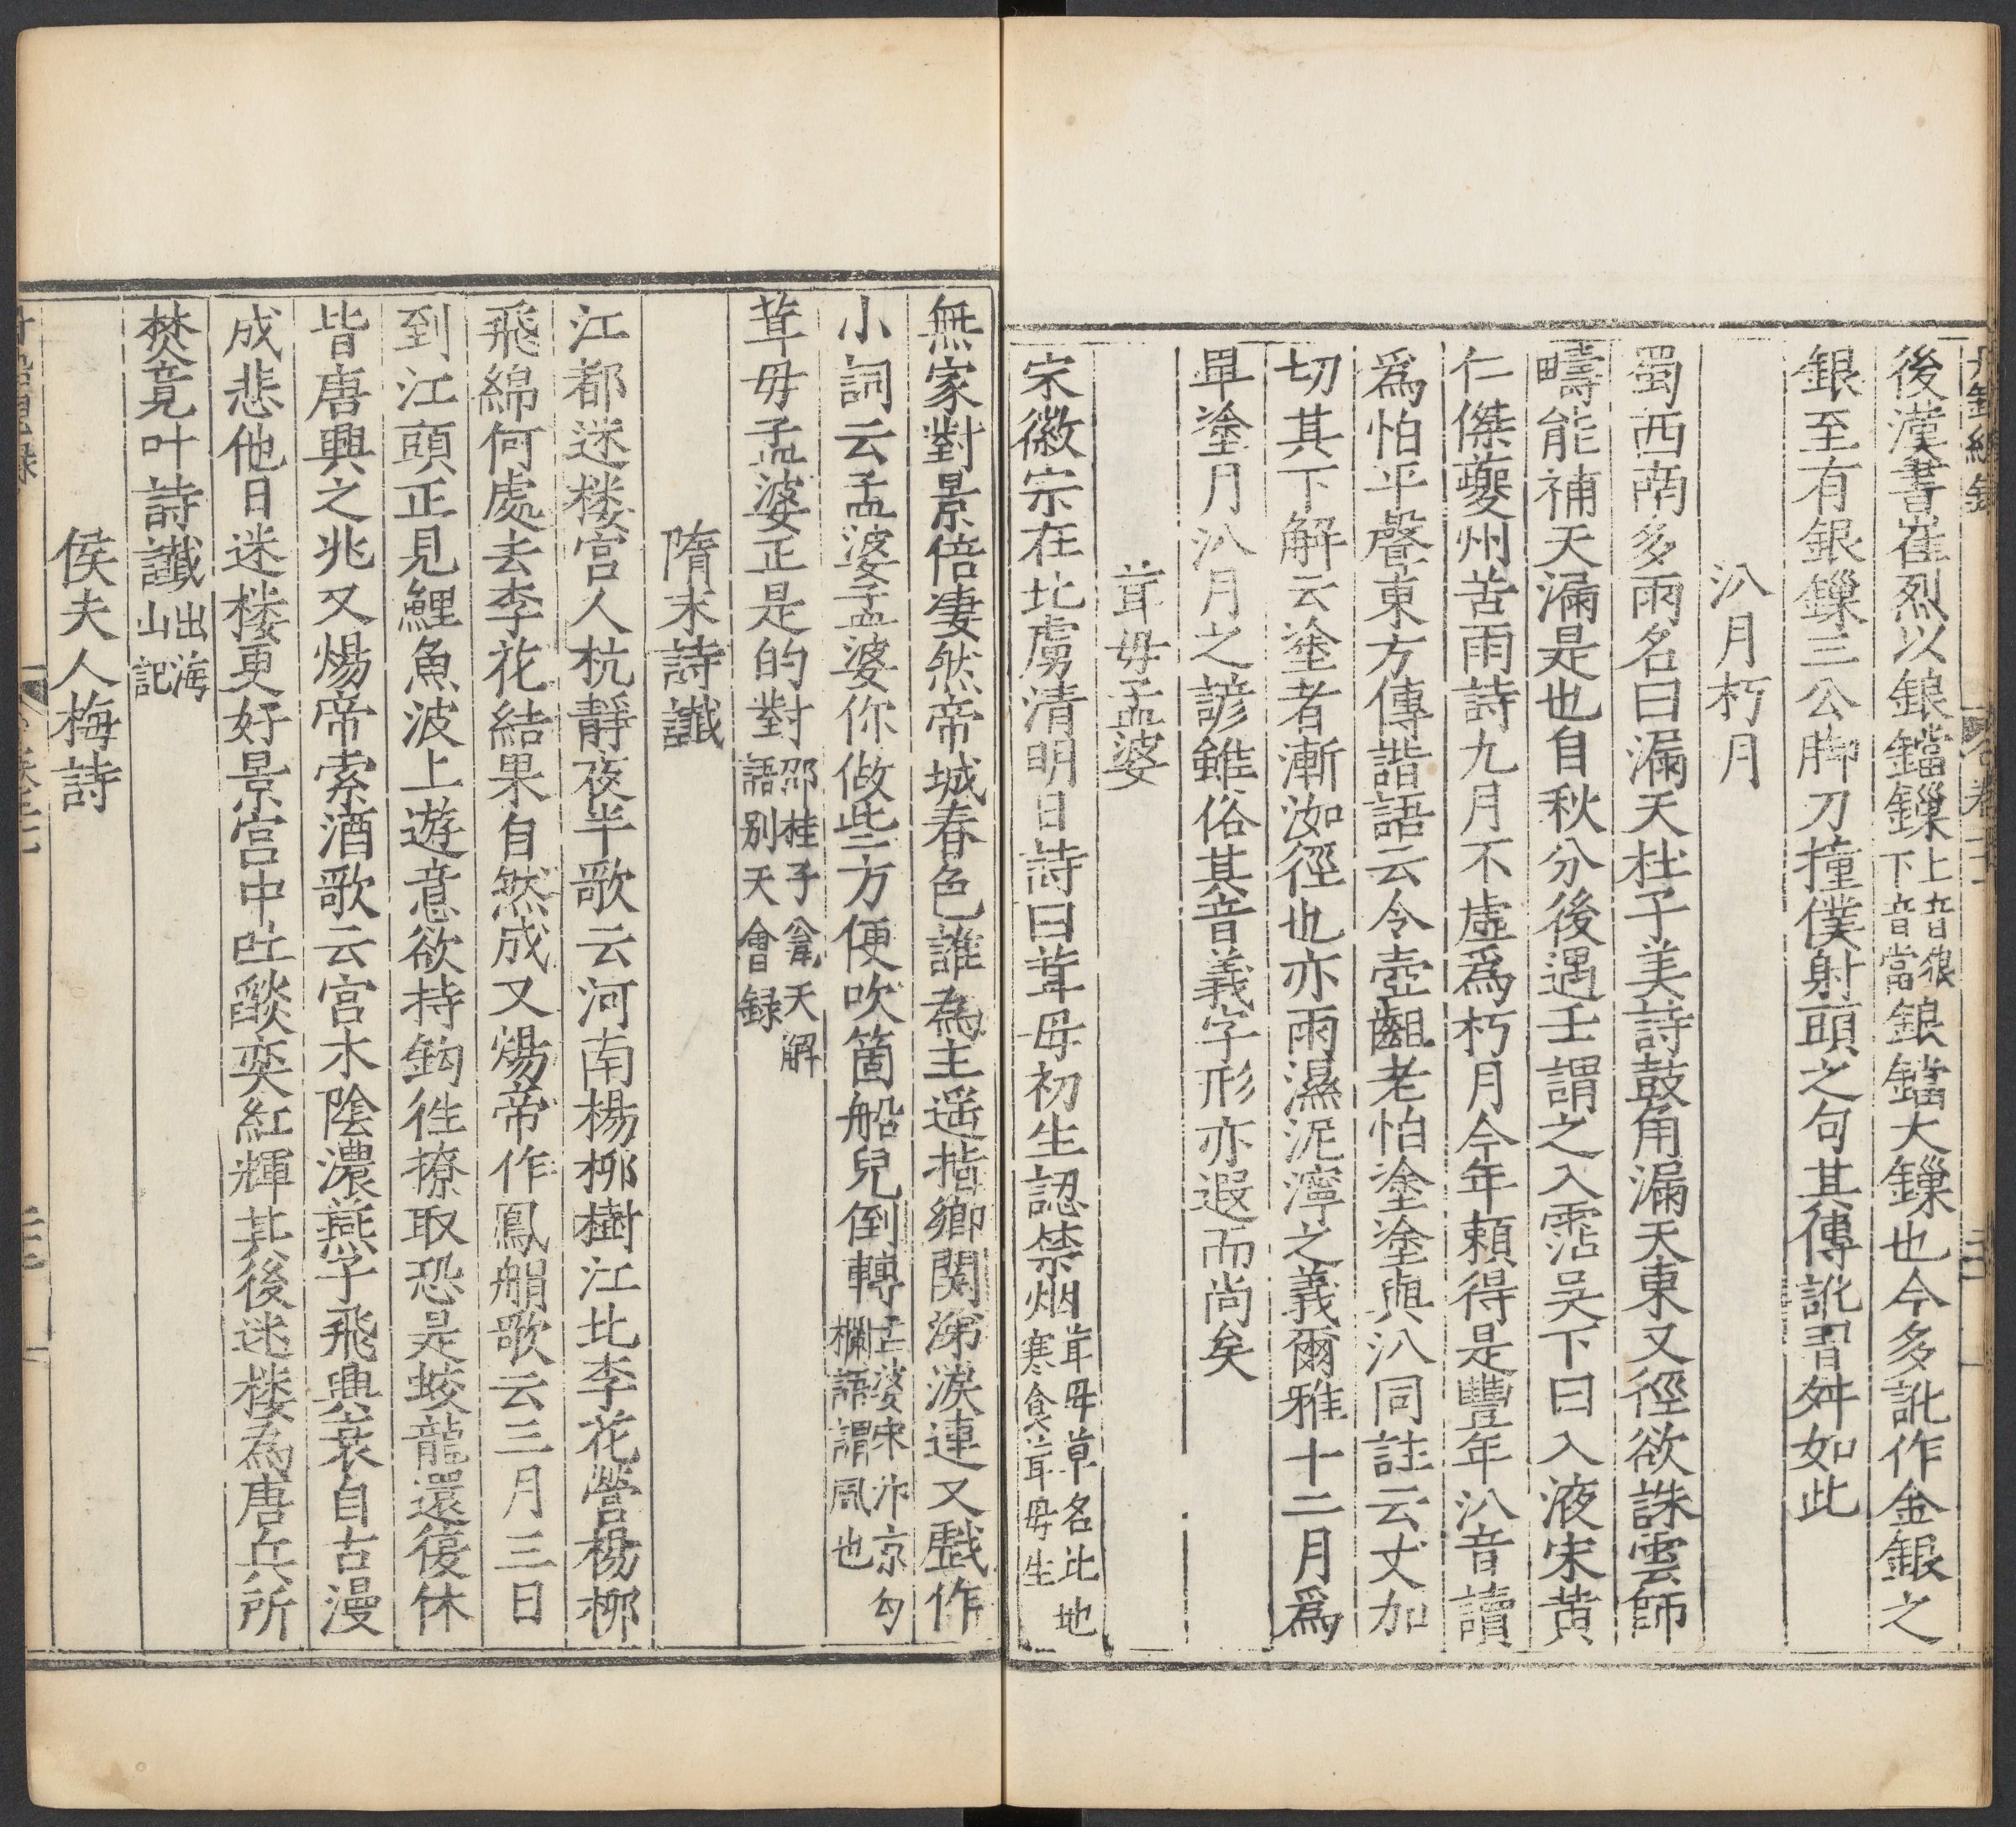 後漢書崔烈以鋃鐺鏁上音狼下音當鋃鐺大鏁也今多訛作金銀之
銀至有銀鏁三公脚刀撞僕射頭之句其傳訛習舛如此
汃月朽月
蜀西南多雨名曰漏天杜子美詩鼓角漏天東又徑欲誅雲師
疇能補天漏是也自秋分後遇壬謂之入霑吳下曰入液宋黄
仁傑夔州苦雨詩九月不虛爲朽月今年頼得是豐年汃音讀
爲怕平聲東方傳諧語云令壺齟老怕塗塗與汃同註云丈加
切其下解云塗者漸洳徑也亦雨濕泥濘之義爾雅十二月爲
畢塗月汃月之諺雖俗其音義字形亦遐而尚矣
茸毋孟婆
宋徽宗在北虜清明日詩曰茸母初生認禁烟茸母草名北地寒食茸母生
無家對景倍凄然帝城春色誰為主遥指鄉関涕淚連又戯作
小詞云孟婆孟婆你做些方便吹箇船兒倒轉孟婆宋汴京勾欄語謂風也
茸毋孟婆正是的對邵桂子瓮天解語别天會録
隋末詩讖
江都迷楼宫人杭靜夜半歌云河南楊栁樹江北李花營楊栁
飛綿何處去李花結果自然成又煬帝作鳳䑺歌云三月三日
到江頭正見鯉魚波上遊意欲持鈎徃撩取恐是蛟龍還復休
皆唐興之兆又煬帝索酒歌云宫木陰濃燕子飛興衰自古漫
成悲他日迷楼更好景宫中吐燄奕紅輝其後迷楼為唐兵所
焚竟叶詩讖出海山記
侯夫人梅詩